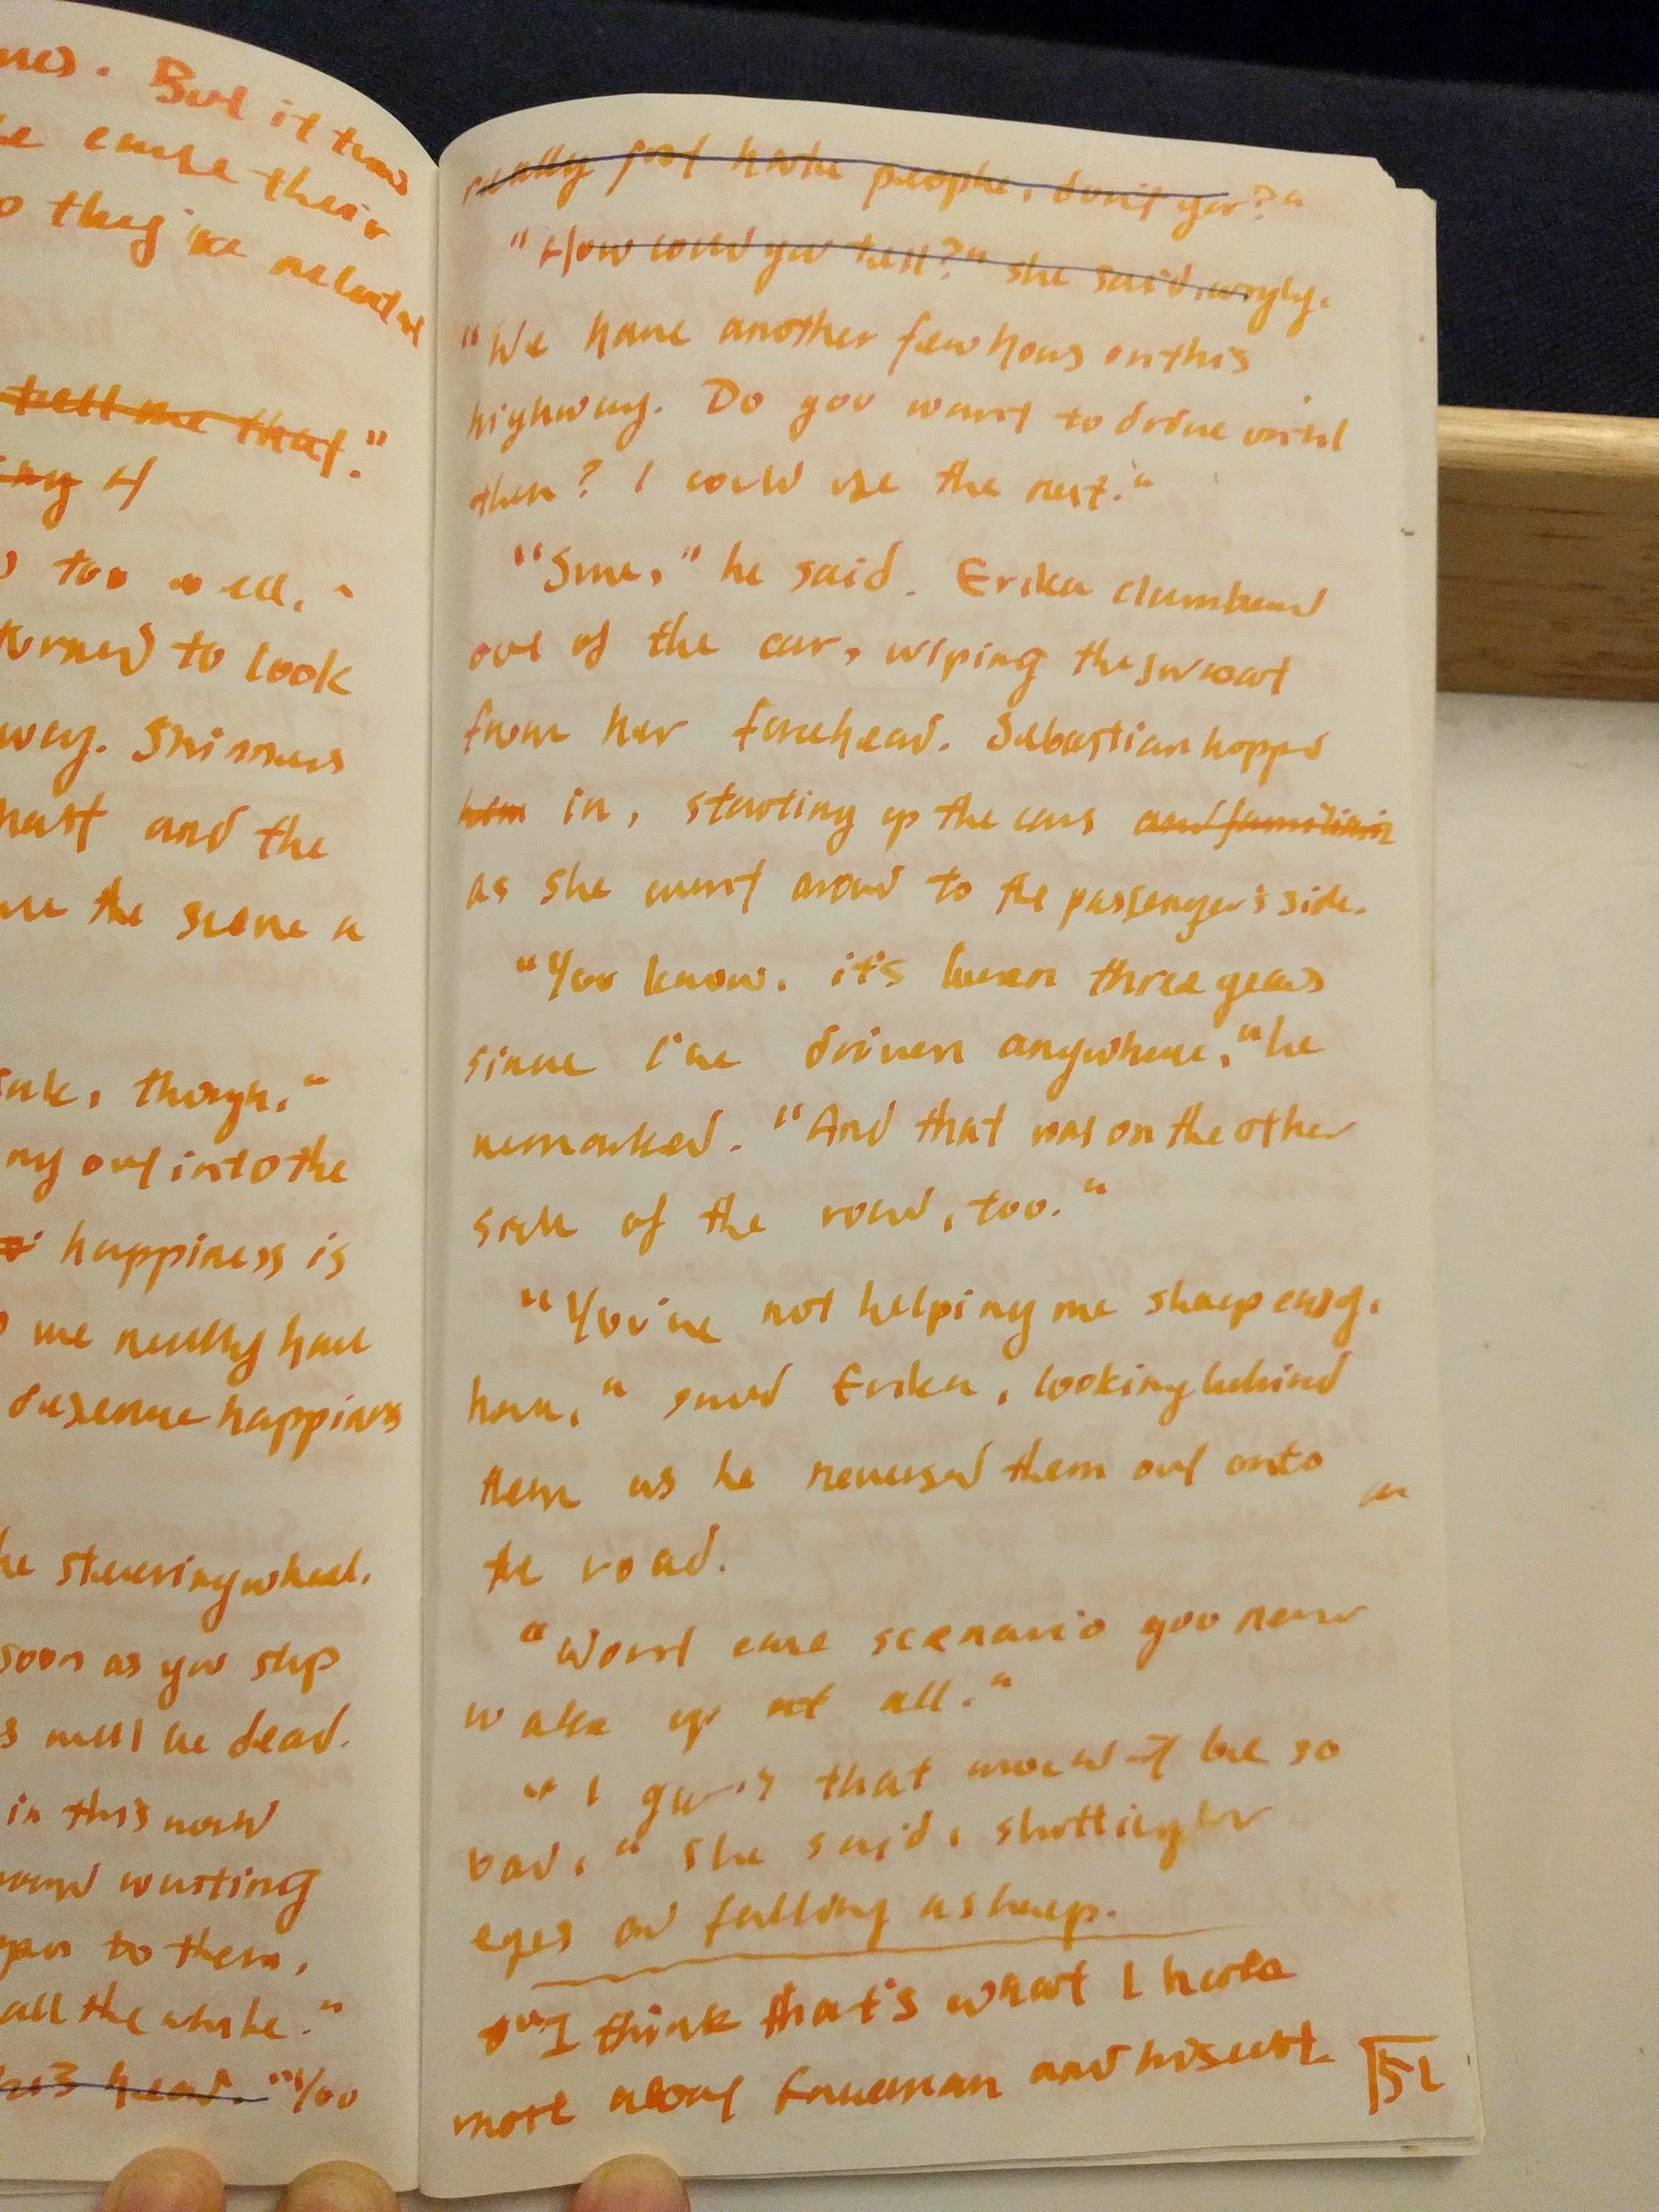 mes. But it turns
e cause their
o they're
tell me that."
4
too well."
turned to look
way. Shimmers
and the
the scene a
though."
ng out into the
happiness is
me really have
deserve happiness
he steering wheel.
soon as you step
s will be dead.
in this
wasting
to them,
all the while."
his head. "You
really just hate people, don't you?"
"How could you tell?" she said, wryly.
"We have another few hours on this
highway. Do you want to drive until
then? I could use the rest."
"Sure," he said. Erika clambered
out of the car, wiping the sweat
from her forehead. Sebastian hopped
him in, starting up the cars and
as she went around to the passenger's side.
"You know, it's been three years
since I've driven anywhere," he
remarked. "And that was on the other
side of the road, too."
"You're not helping me sleep easy,
here," said Erika, looking behind
them as he reversed them out onto
the road.
"Worst case scenario you never
wake up at all."
"I guess that wouldn't be so
bad," she said, shutting her
eyes and falling asleep.
"I think that's what I hate
more about and his
51